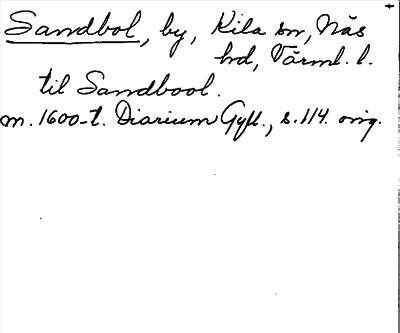 Sandbol, by, Kila sn, Näs
hd, Värml. l.
til Sandbool.
m. 1600-t. Diarium Gyll., s. 114. orig.